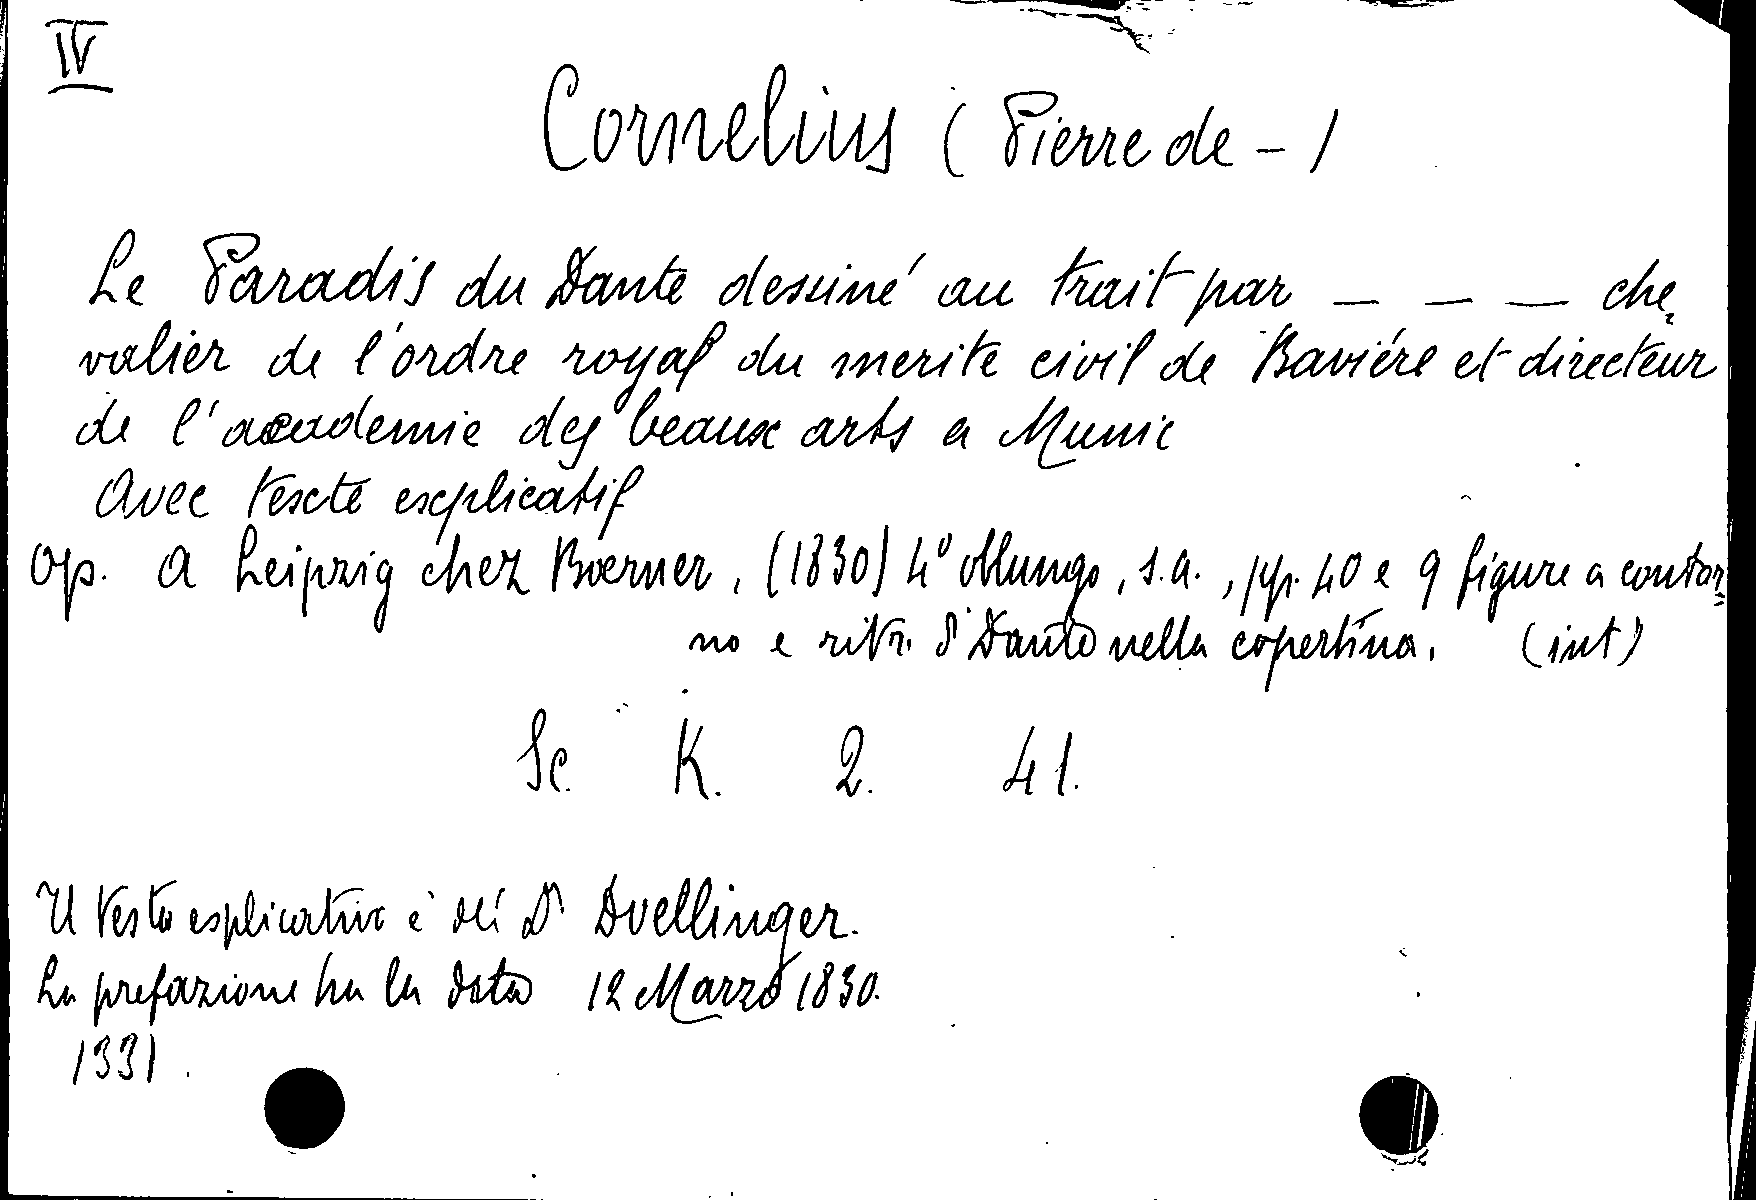 IV
Cornelius (Pierre de - )
Le Paradis du Dante dessiné au trait par — — — che
valier de l'ordre royal du merite civil de Baviére et directeur
de l'academie des beaux arts a Munic
Avec texte explicatif
Op. A Leipzig chez Boerner, (1830) 4° oblungo, s.a., pp. 40 e 9 figure a contor=
no e ritr. di Dante nella copertina. (int)
Sc. K. 2. 41.
Il testo esplicativo è del Dr Doellinger.
La prefazione ha la data 12 Marzo 1830.
1331.